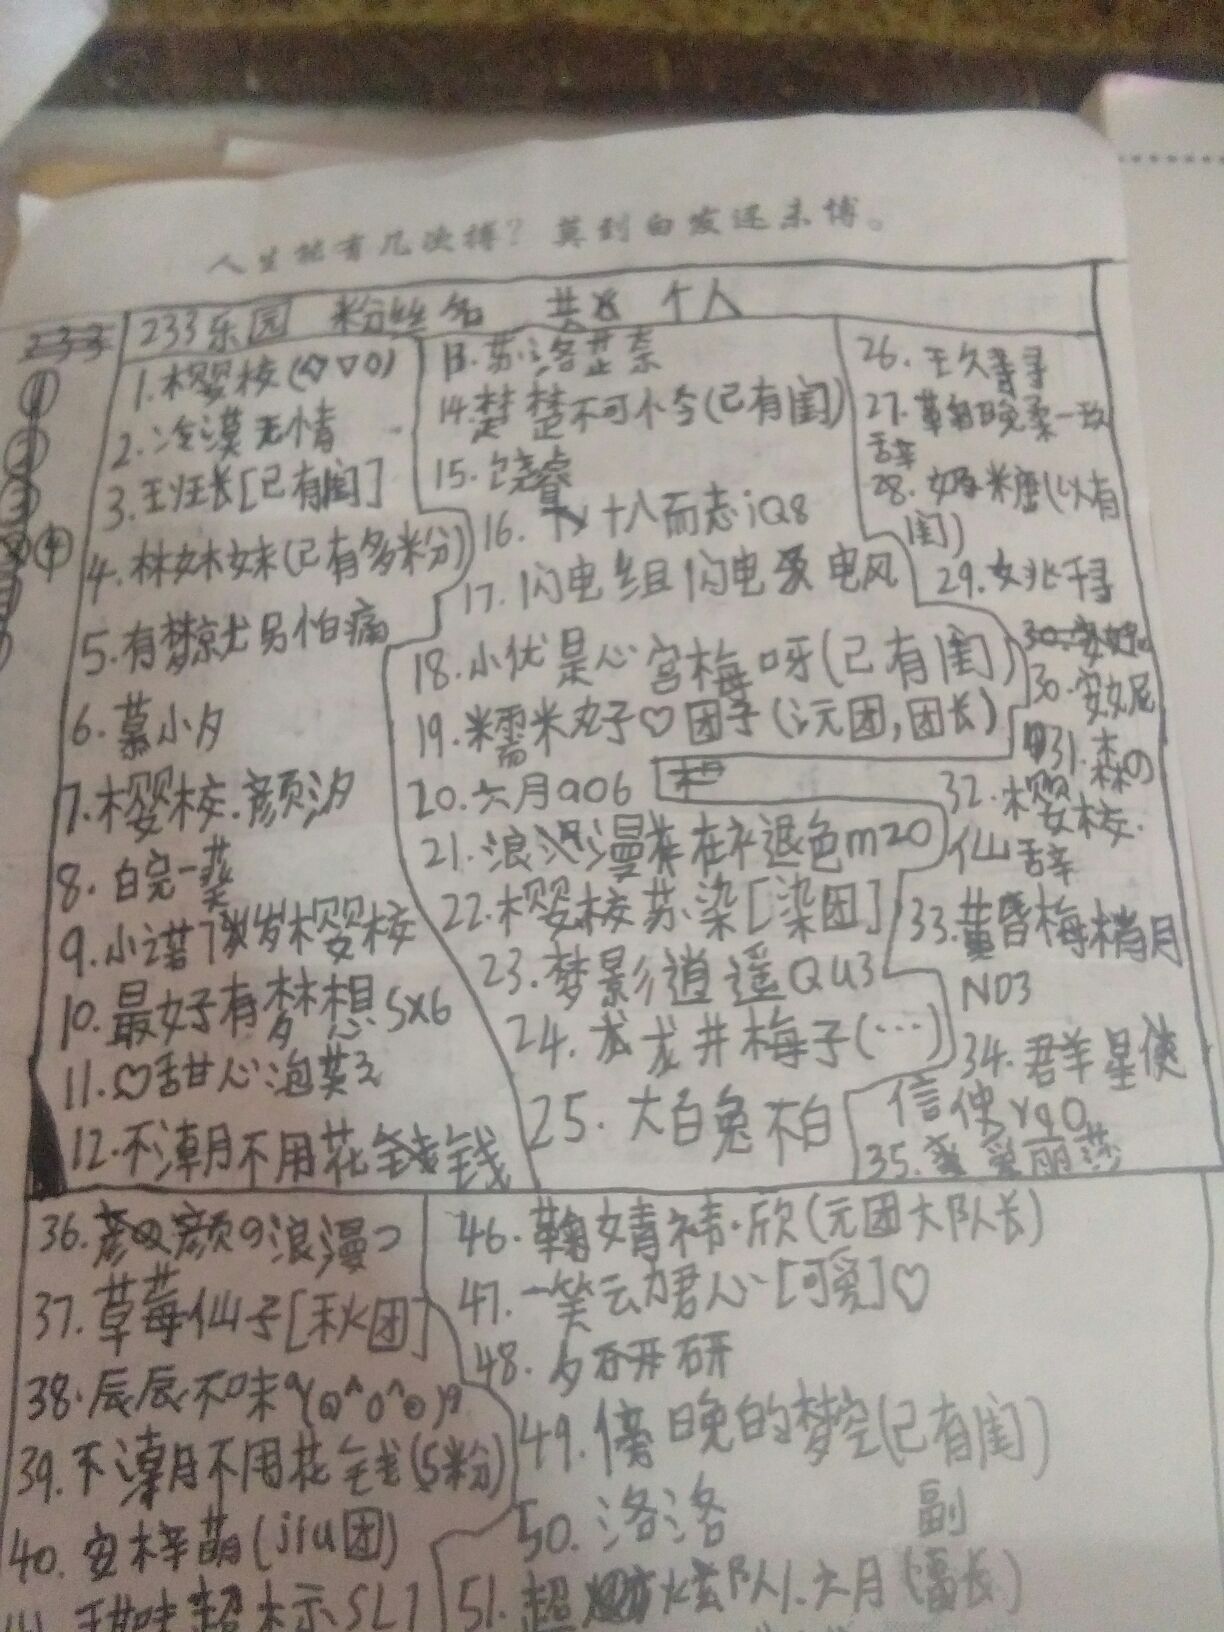 人生能有几次搏？莫到白发还未博。
233乐园 粉丝名 共 个人
1.樱桉(◇▽0)
2.冷漠无情
3.王妊长[已有闺]
4.林妹妹(已有多粉)
5.有梦就另怕痛
6.慕小夕
7.樱桉.颜汐
8.白完一笑
9.小诺7岁樱桉
10.最好有梦想5X6
11.♡甜心泡芙
12.不潮不用花钱
13.苏洛芷柰
14.楚楚不可小令(已有闺)
15.饶睿
16.十八而志iQ8
17.闪电组闪电 电风
18.小优是心宫梅呀(已有闺)
19.糯米丸子♡团子(沅团,团长)
20.六月906
21.浪漫 在衤退色m20
22.樱桉苏染[染团]
23.梦影逍遥QU3
24.龙龙井梅子(…)
25.大白兔木白
26.王久寻寻
27. 晚柔一玖
辞
28.奶米 (以有
闺)
29.姚千寻
30.安妮
31.森の
32.樱桉.
仙辞
33.黄昏梅梢月
N03
34.群星使
信使Yq0
35.爱丽莎
36. 颜の浪漫つ
37.草莓仙子[秋团]
38.辰辰不味9(⊙^o^⊙)9
39.不潮不用花钱(5粉)
40.安梓萌(jiu团)
41.甜味超标SL7
46.鞠婧祎.欣(元团大队长)
47.一笑云 君心[可爱]♡
48.夕研研
49.傍晚的梦空(已有闺)
50.洛洛
副
51.超 炫队1.六月(长)